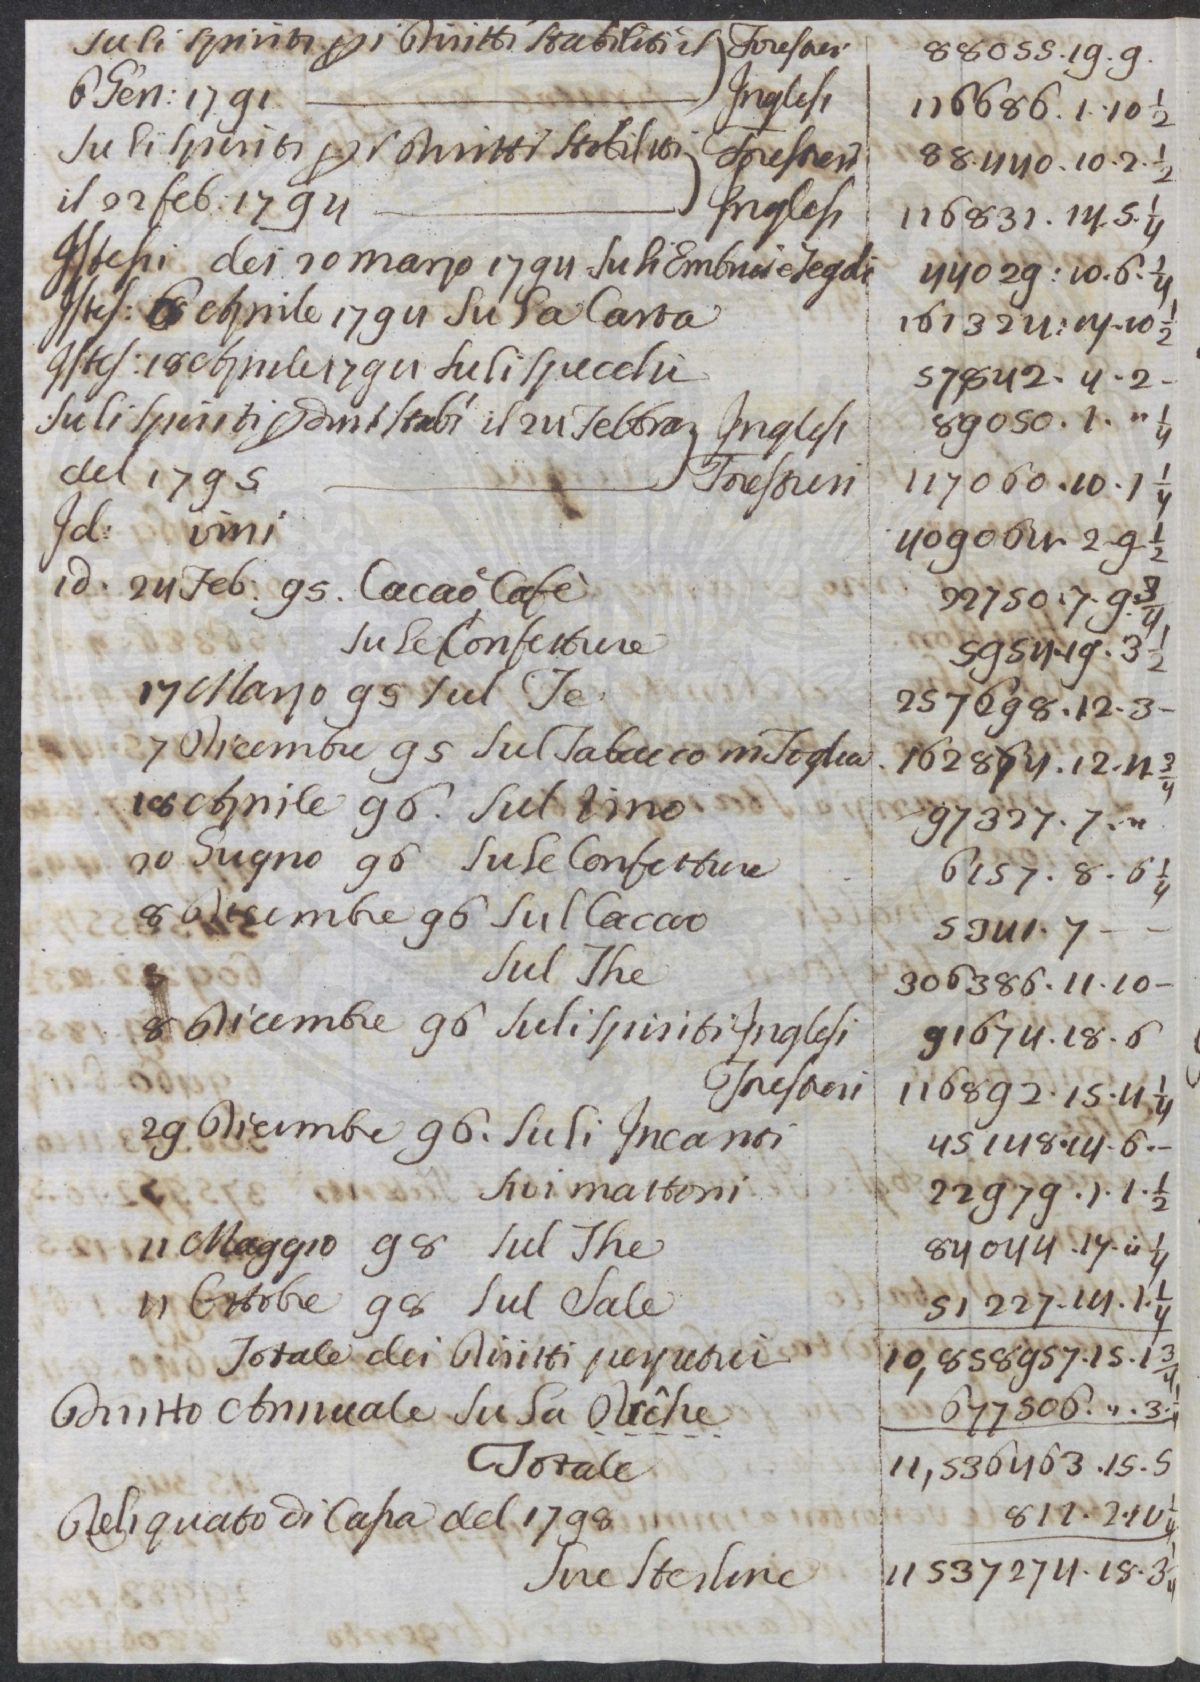 Su li spiriti pr i Diritti stabiliti il Forestieri 88055.19.9.
6 Gen: 1791 Inglesi 116686.1.10 1/2
Su li spiriti pr i Diritti stabiliti Forestieri 88440.10.2.1/2
il 22 feb: 1794 Inglesi 116831.14.5.1/4
Istessi dei 20 marzo 1794 su li Embrici e Tegoli 44029:10.6.1/4
Istes: 6 Aprile 1794 Su La Carta 161324:14.10 1/2
Istes: 18 Aprile 1794 su li specchi 57842.4.2-
Su li spiriti stabi il 24 Febbra Inglesi 89050.1." 1/4
del 1795 Forestieri 117060.10.1 1/4
Id: vini 409064.2.9 1/2
id. 24 Feb. 95. Cacao Cafè 22750.7.9.3/4
Su Le Confetture 5954.19.3 1/2
17 Marzo 95 sul Te 257698.12.3-
7 Dicembre 95 sul Tabacco in Foglia 162864.12.4 3/4
18 Aprile 96. sul Vino 97327.7."
20 Giugno 96 su Le Confetture 6157.8.6 1/4
8 Dicembre 96 sul Cacao 5341.7 - -
sul The 306386.11.10-
8 Dicembre 96 su li spiriti Inglesi 91674.18.6
Forestieri 116892.15.4 1/4
29 Dicembre 96. su li Incanti 45148.14.6.-
sui mattoni 22979.1.1.1/2
11 Maggio 98 sul The 84044.17." 1/4
11 Ottobre 98 sul Sale 51227.14.1.1/4
Totale dei Diritti perpetui 10,858957.15.1 3/4
Diritto Annuale su La Drêche 677506.".3.1/4
Totale 11,536463.15.5
Reliquato di Cassa del 1798 811.2.10 1/4
Lire Sterline 11537274.18.3 1/4